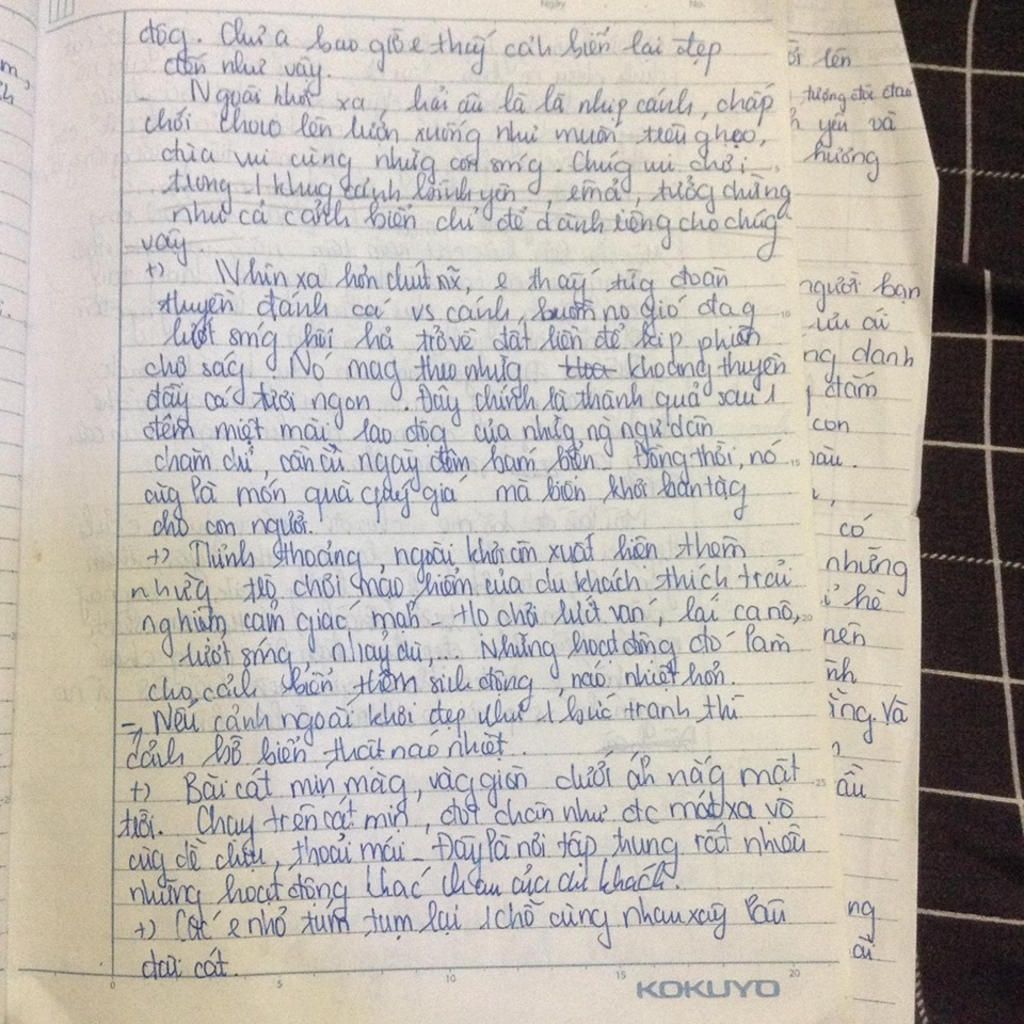 độg. Chưa bao giờ e thấy cảnh biển lại đẹp
đến như vậy.
- Ngoài khơi xa, hải âu là là nhịp cánh, chấp
chới chao lên lướn xuống như muốn trêu ghẹo,
đùa vui cùng nhữg con sóng. Chúg vui chơi
trong 1 khug cảnh bình yên, êm ả, tưởg chừng
như cả cảnh biển chỉ để dành riêng cho chúg
vậy.
+) Nhìn xa hơn chút nx, e thấy từg đoàn
thuyền đánh cá vs cánh buồm no gió đag
lướt sóng hối hả trở về đất liền để kịp phiên
chợ ság. Nó mag theo nhữg khoang thuyền
đầy cá tươi ngon. Đây chính là thành quả sau 1
đêm miệt mài lao độg của nhữg ng ngư dân
chăm chỉ, cần cù ngày đêm bám biển. Đồng thời, nó
cũg là món quà quý giá mà biển khơi ban tặg
cho con người.
+) Thỉnh thoảng, ngoài khơi còn xuất hiện thêm
những trò chơi mạo hiểm của du khách thích trải
nghiệm cảm giác mạh - trò chơi lướt ván, lái ca nô,
lướt sóng, nhảy dù,... Những hoạt động đó làm
cho cảnh biển thêm sinh động, náo nhiệt hơn.
- Nếu cảnh ngoài khơi đẹp như 1 bức tranh thì
cảnh bờ biển thật náo nhiệt.
+) Bãi cát mịn màg, vàg giòn dưới ánh nắg mặt
trời. Chạy trên cát mịn, đôi chân như đc mát xa vô
cùg dễ chịu, thoải mái. Đây là nơi tập trung rất nhiều
những hoạt động khác nhau của du khách.
+) Các e nhỏ túm tụm lại 1 chỗ cùng nhau xây lâu
đài cát.
ồi lên
tượng đài đao
h yên và
hương
người bạn
ưu ái
ng danh
đắm
con
màu.
có
những
hè
nên
ình
ằng. Và
ầu
ng
KOKUYO
0 5 10 15 20
10
15
20
25